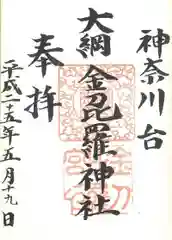 神奈川台
大綱金刀毘羅神社
奉拝
平成二十五年五月十九日